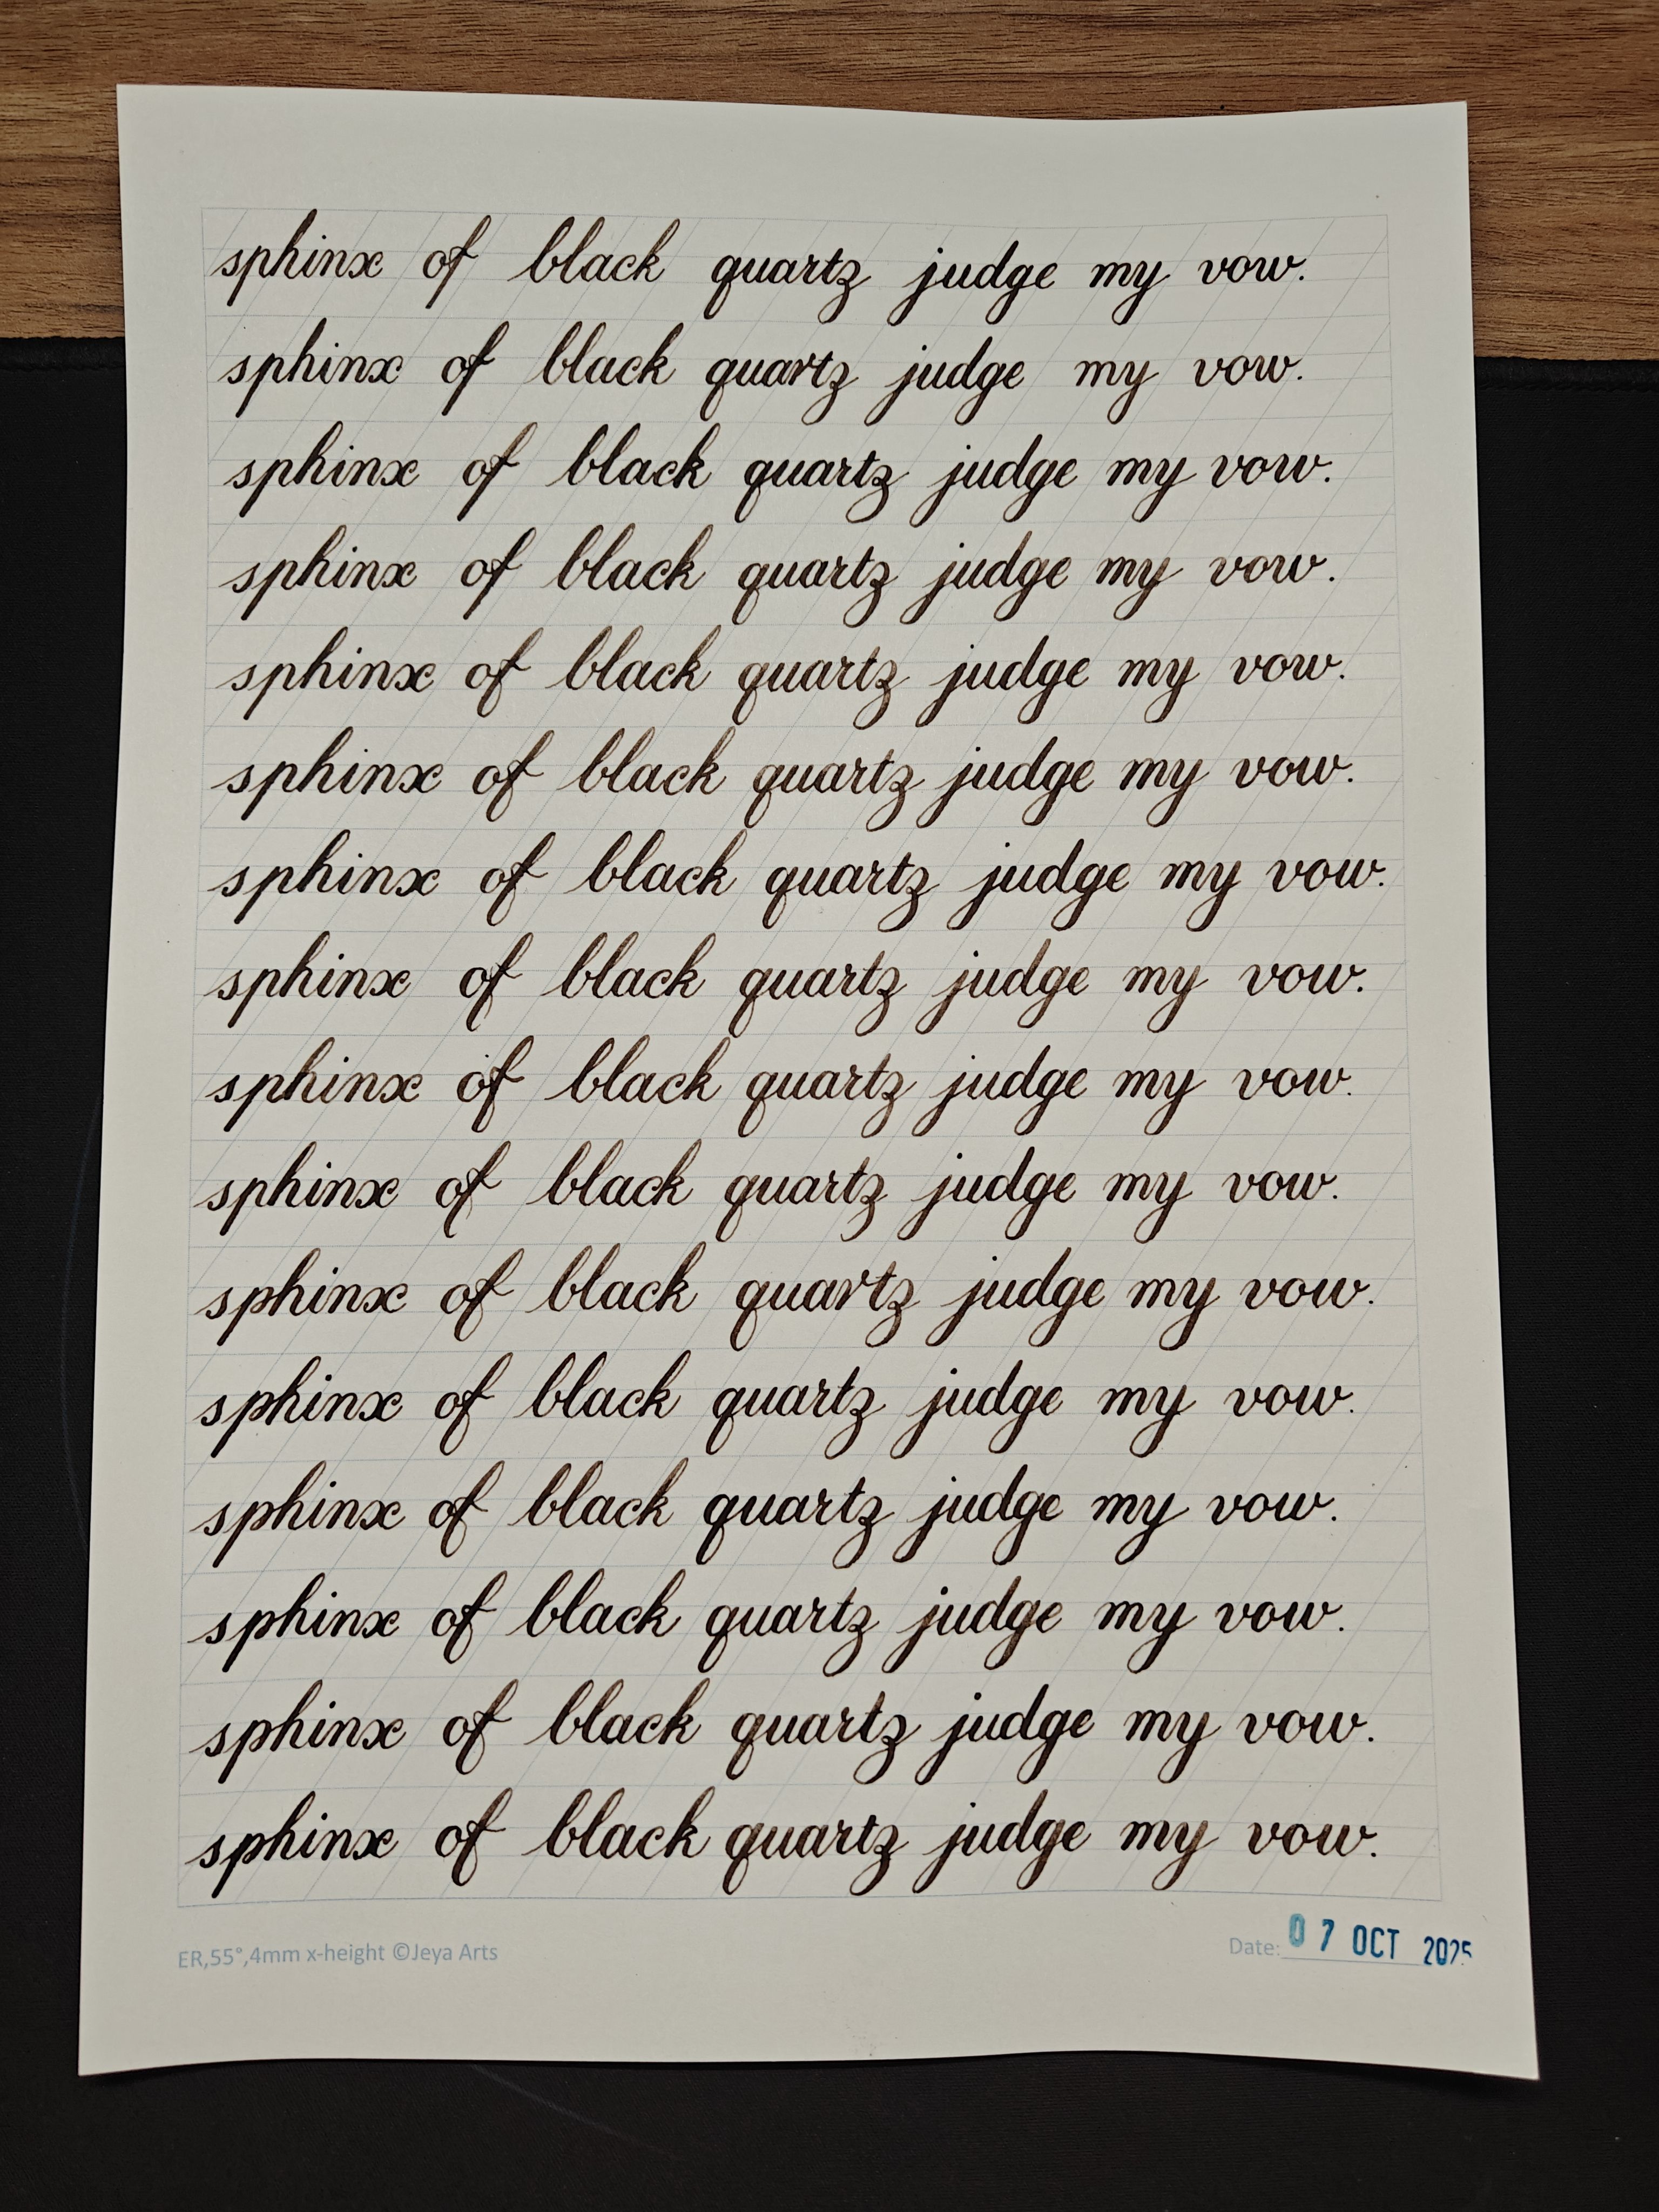 sphinx of black quartz judge my vow.
sphinx of black quartz judge my vow.
sphinx of black quartz judge my vow.
sphinx of black quartz judge my vow.
sphinx of black quartz judge my vow.
sphinx of black quartz judge my vow.
sphinx of black quartz judge my vow.
sphinx of black quartz judge my vow.
sphinx of black quartz judge my vow.
sphinx of black quartz judge my vow.
sphinx of black quartz judge my vow.
sphinx of black quartz judge my vow.
sphinx of black quartz judge my vow.
sphinx of black quartz judge my vow.
sphinx of black quartz judge my vow.
sphinx of black quartz judge my vow.
ER,55°,4mm x-height ©Jeya Arts Date: 07 OCT 2025